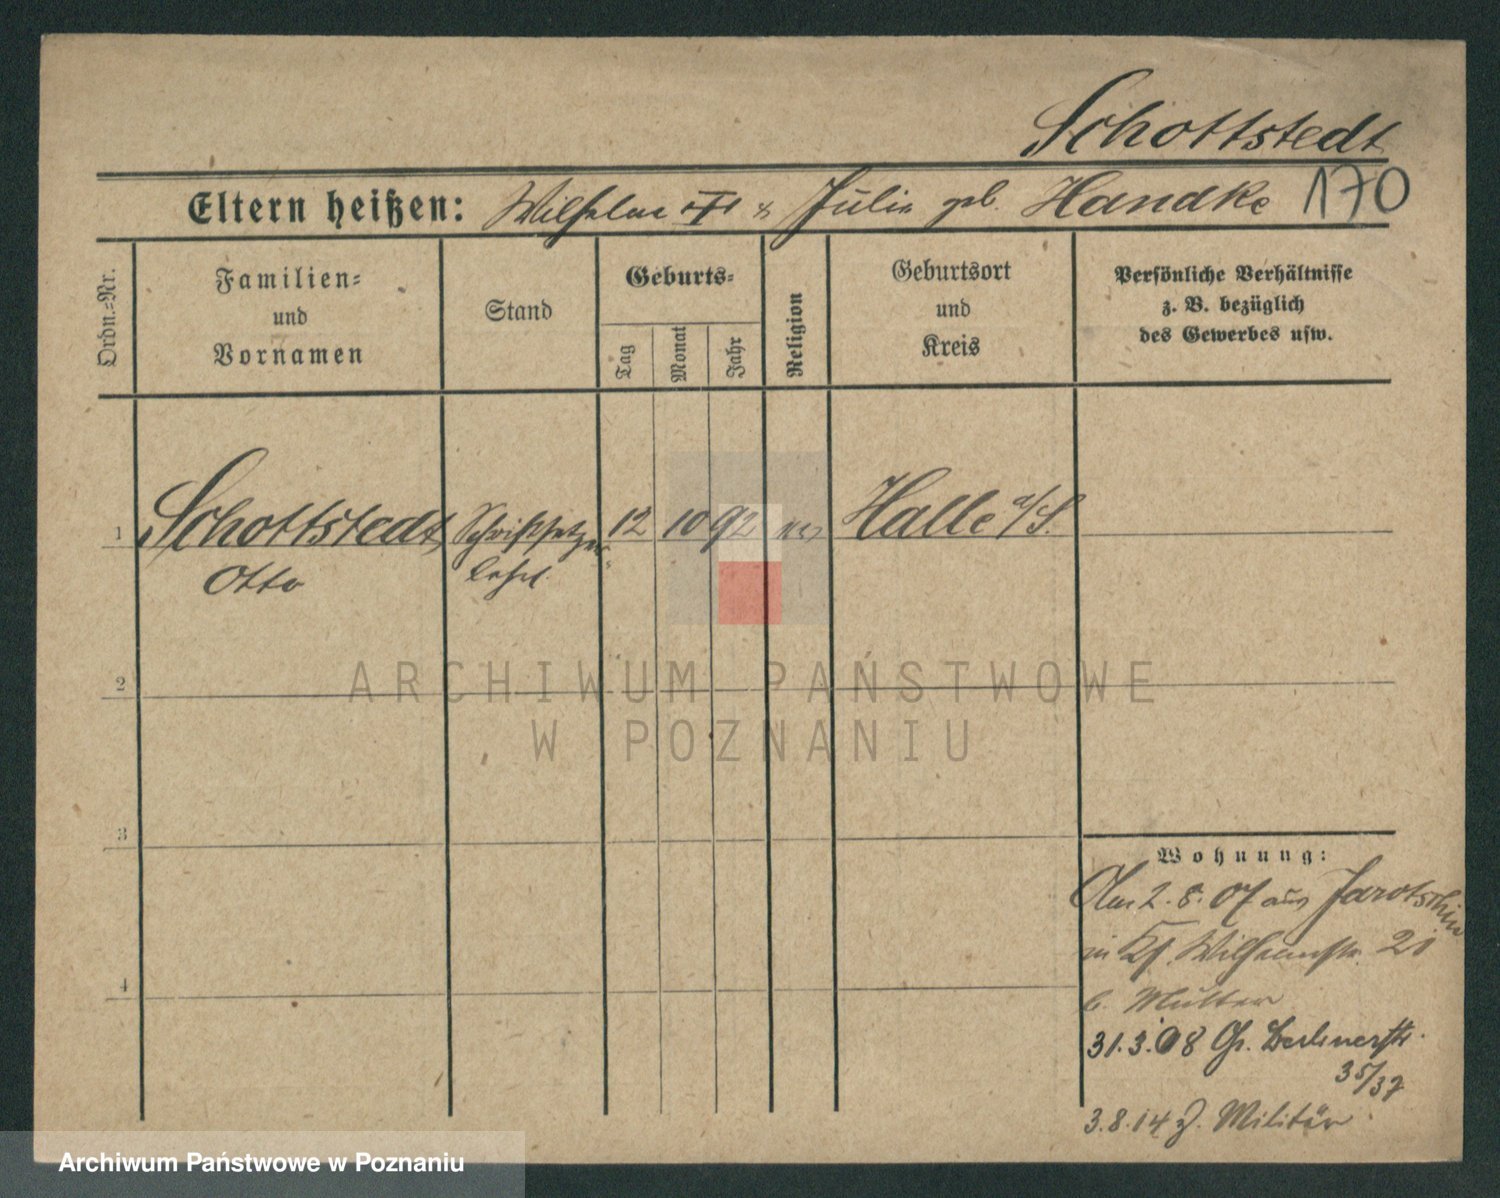 Schottstedt
Eltern heißen: Wilhelm & Julie geb. Handke 170
Ordn.=Nr.
Familien=
und
Vornamen
Stand
Geburts=
Tag
Monat
Jahr
Religion
Geburtsort
und
Kreis
Persönliche Verhältnisse
z. B. bezüglich
des Gewerbes usw.
1 Schottstedt, Schriftsetzer 12 10 92 Halle a/S.
Otto lehrl.
2
3
4
Wohnung:
Am 2.8.07 aus Jarotschin
in Wilhelmstr. 20
b. Mutter
31.3.08 Gr. Berlinerstr.
35/37
3.8.14 z. Militär
ARCHIWUM PAŃSTWOWE
W POZNANIU
Archiwum Państwowe w Poznaniu